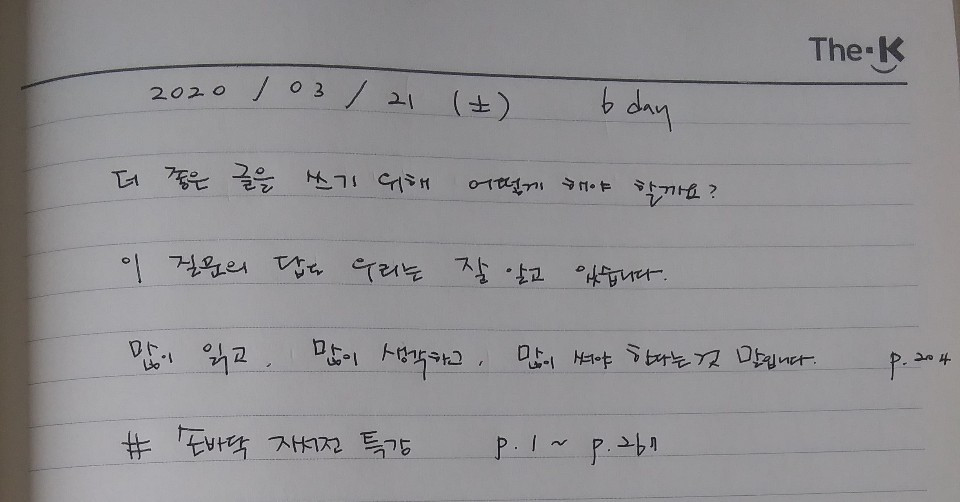 The·K
2020 / 03 / 21 (土) 6 day
더 좋은 글을 쓰기 위해 어떻게 해야 할까요?
이 질문의 답은 우리는 잘 알고 있습니다.
많이 읽고, 많이 생각하고, 많이 써야 한다는 것 말입니다. p.204
# 손바닥 자서전 특강 p.1 ~ p.267